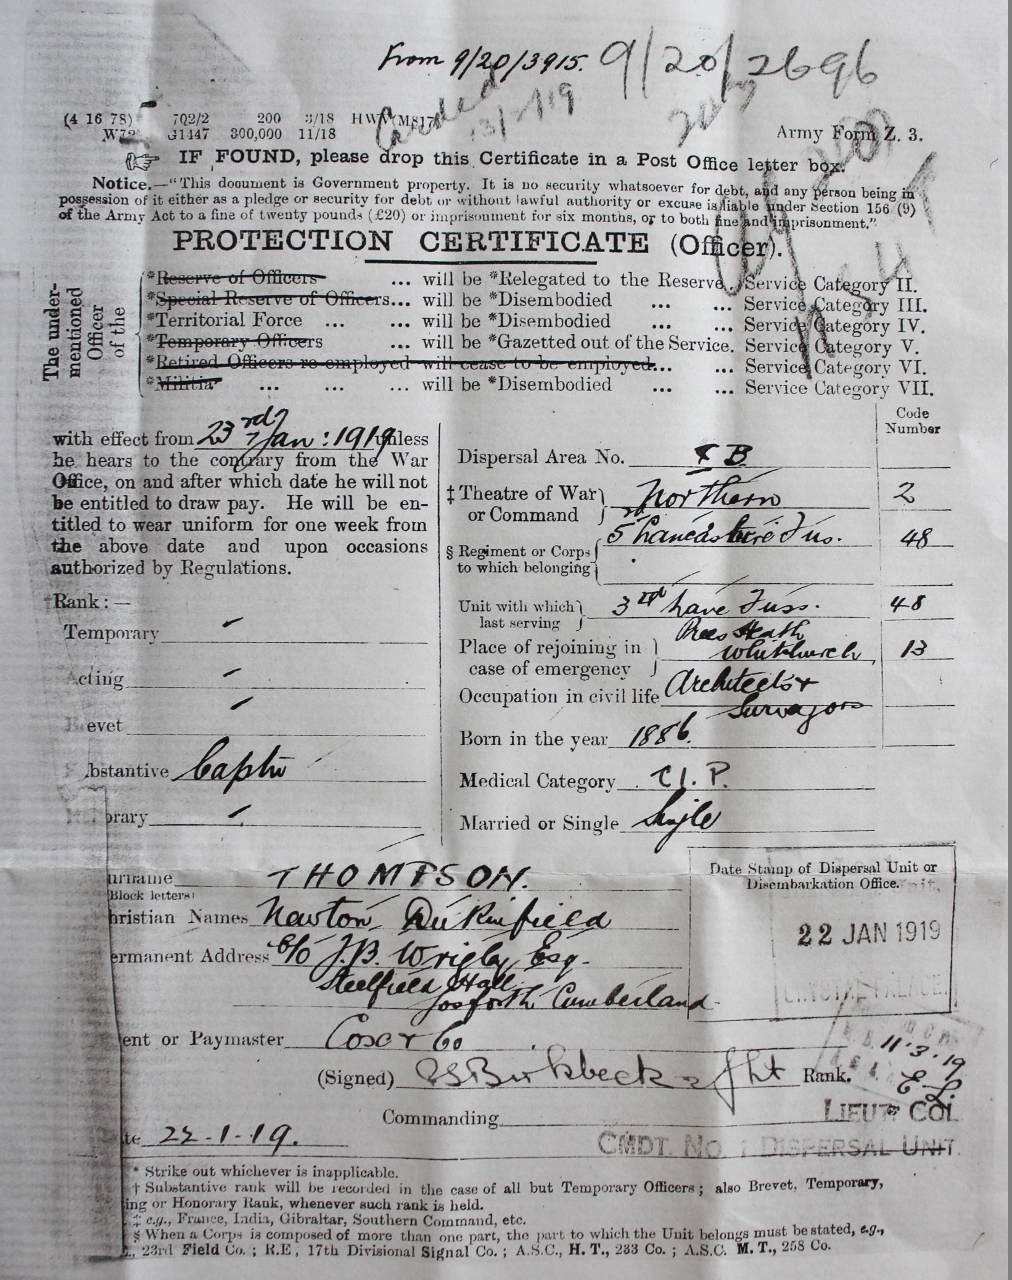 From 9/20/3915. 9/20/2696
(4 16 78) 7Q2/2 200 3/18 HW
G1447 300,000 11/18
Army Form Z. 3.
IF FOUND, please drop this Certificate in a Post Office letter box.
Notice.—"This document is Government property. It is no security whatsoever for debt, and any person being in
possession of it either as a pledge or security for debt or without lawful authority or excuse is liable under Section 156 (9)
of the Army Act to a fine of twenty pounds (£20) or imprisonment for six months, or to both fine and imprisonment."
PROTECTION CERTIFICATE (Officer).
The under-
mentioned
Officer
of the
*Reserve of Officers ... will be *Relegated to the Reserve. Service Category II.
*Special Reserve of Officers... will be *Disembodied ... ... Service Category III.
*Territorial Force ... ... will be *Disembodied ... ... Service Category IV.
*Temporary Officers ... will be *Gazetted out of the Service. Service Category V.
*Retired Officers re-employed will cease to be employed... ... Service Category VI.
*Militia ... ... ... will be *Disembodied ... ... Service Category VII.
with effect from 23rd Jan: 1919 unless
he hears to the contrary from the War
Office, on and after which date he will not
be entitled to draw pay. He will be en-
titled to wear uniform for one week from
the above date and upon occasions
authorized by Regulations.
Rank:—
Temporary
Acting
evet
bstantive Captn
orary
Code
Number
Dispersal Area No. B
‡ Theatre of War
or Command Northern 2
§ Regiment or Corps
to which belonging 5 Lancashire Fus. 48
Unit with which
last serving 3rd Lanc Fuss. 48
Place of rejoining in
case of emergency Prees Heath
Whitchurch 13
Occupation in civil life Architects &
Surveyors
Born in the year 1886.
Medical Category C1. P.
Married or Single Single
urname THOMPSON.
Block letters)
hristian Names Newton Dukinfield
ermanent Address c/o J.B. Wrigley Esq.
Steelfield Hall
Gosforth Cumberland
ent or Paymaster Cox & Co
Date Stamp of Dispersal Unit or
Disembarkation Office.
22 JAN 1919
CRYSTAL PALACE.
11.3.19
(Signed) Birkbeck Rank.
LIEUT COL
Commanding
CMDT. NO 1 DISPERSAL UNIT
te 22-1-19.
* Strike out whichever is inapplicable.
† Substantive rank will be recorded in the case of all but Temporary Officers; also Brevet, Temporary,
ing or Honorary Rank, whenever such rank is held.
‡ e.g., France, India, Gibraltar, Southern Command, etc.
§ When a Corps is composed of more than one part, the part to which the Unit belongs must be stated, e.g.,
, 23rd Field Co.; R.E, 17th Divisional Signal Co.; A.S.C., H. T., 233 Co.; A.S.C. M. T., 258 Co.